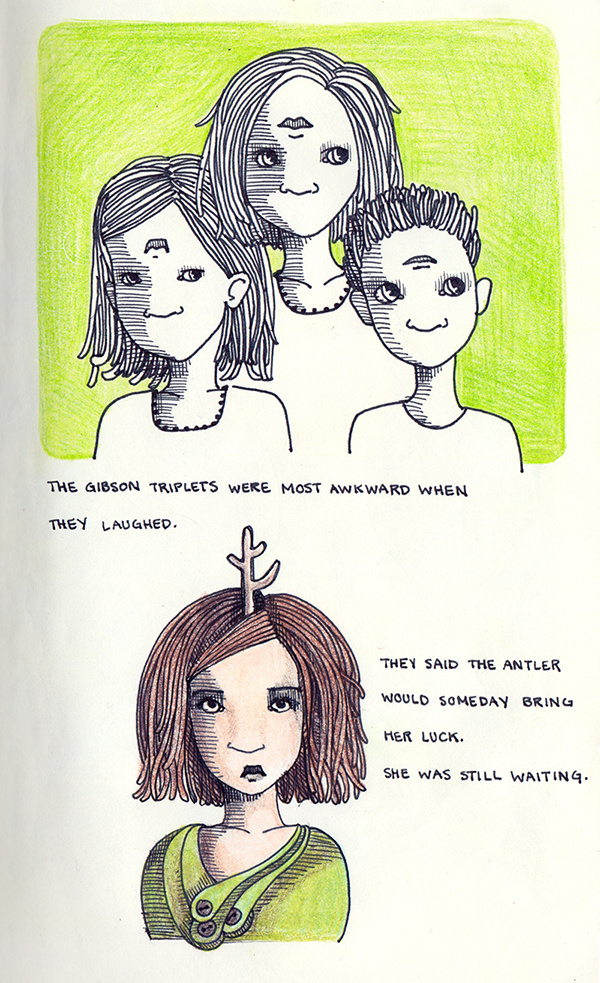 THE GIBSON TRIPLETS WERE MOST AWKWARD WHEN
THEY LAUGHED.
THEY SAID THE ANTLER
WOULD SOMEDAY BRING
HER LUCK.
SHE WAS STILL WAITING.